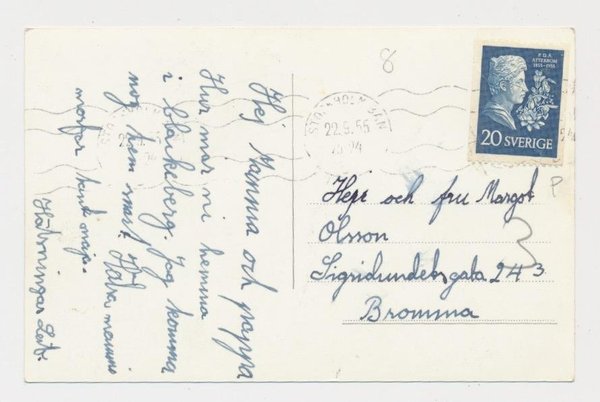 Hej Mamma och pappa
Hur mår ni hemma
i blackeberg. Jag komma
nog hem snart
mormor
morfar
Hälsningar
8
STOCKHOLM
22.9.55
P.D.A.
ATTERBOM
1855-1955
20 SVERIGE
P
Herr och fru Margot
Olsson
Sigridundetsgata 24 3
Bromma
3